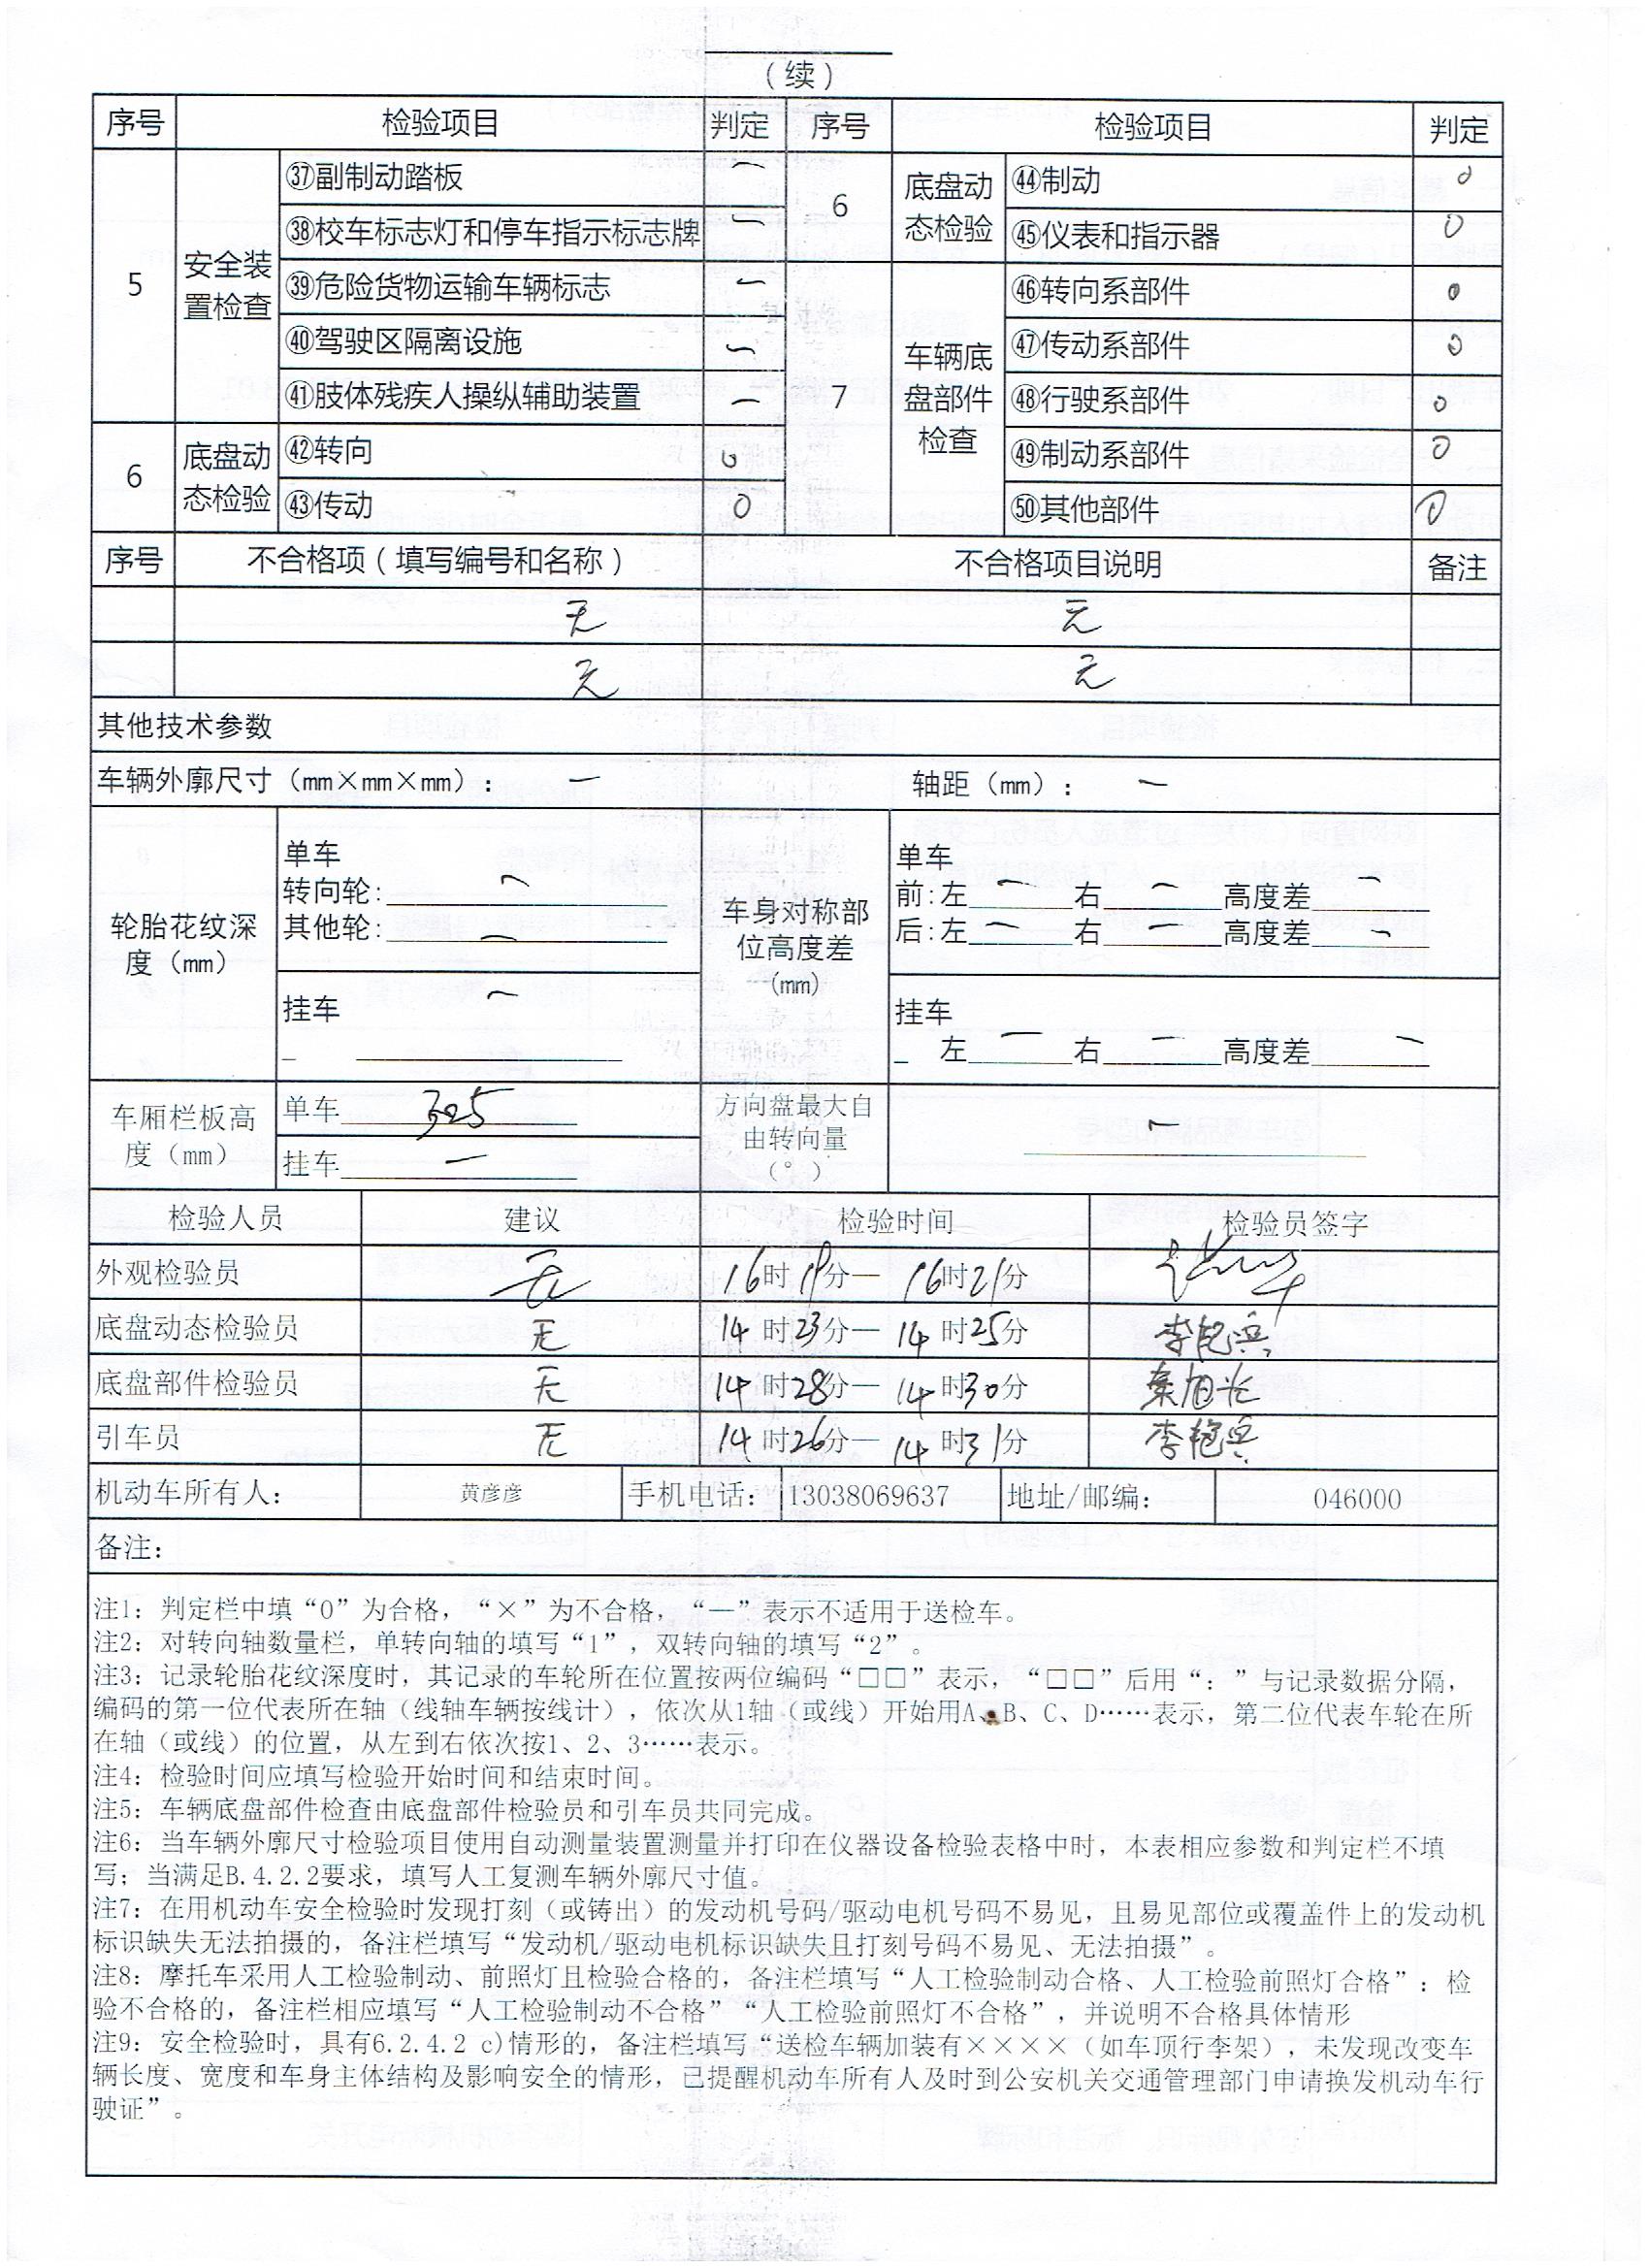 （续）
序号 检验项目 判定 序号 检验项目 判定
5 安全装置检查 ㊲副制动踏板 — 6 底盘动态检验 ㊹制动 0
㊳校车标志灯和停车指示标志牌 — ㊺仪表和指示器 0
㊴危险货物运输车辆标志 — 7 车辆底盘部件检查 ㊻转向系部件 0
㊵驾驶区隔离设施 — ㊼传动系部件 0
㊶肢体残疾人操纵辅助装置 — ㊽行驶系部件 0
6 底盘动态检验 ㊷转向 0 ㊾制动系部件 0
㊸传动 0 ㊿其他部件 0
序号 不合格项（填写编号和名称） 不合格项目说明 备注
无 无
无 无
其他技术参数
车辆外廓尺寸（mm×mm×mm）： — 轴距（mm）： —
轮胎花纹深度（mm） 单车
转向轮: —
其他轮: —
挂车 —
车身对称部位高度差(mm) 单车
前:左 — 右 — 高度差 —
后:左 — 右 — 高度差 —
挂车
左 — 右 — 高度差 —
车厢栏板高度（mm） 单车 325
挂车 —
方向盘最大自由转向量（°） —
检验人员 建议 检验时间 检验员签字
外观检验员 无 16时19分— 16时21分
底盘动态检验员 无 14时23分— 14时25分 李艳兵
底盘部件检验员 无 14时28分— 14时30分 秦旭光
引车员 无 14时26分— 14时31分 李艳兵
机动车所有人: 黄彦彦 手机电话: 13038069637 地址/邮编: 046000
备注:
注1: 判定栏中填“0”为合格，“×”为不合格，“—”表示不适用于送检车。
注2: 对转向轴数量栏，单转向轴的填写“1”，双转向轴的填写“2”。
注3: 记录轮胎花纹深度时，其记录的车轮所在位置按两位编码“□□”表示，“□□”后用“：”与记录数据分隔，
编码的第一位代表所在轴（线轴车辆按线计），依次从1轴（或线）开始用A、B、C、D……表示，第二位代表车轮在所
在轴（或线）的位置，从左到右依次按1、2、3……表示。
注4: 检验时间应填写检验开始时间和结束时间。
注5: 车辆底盘部件检查由底盘部件检验员和引车员共同完成。
注6: 当车辆外廓尺寸检验项目使用自动测量装置测量并打印在仪器设备检验表格中时，本表相应参数和判定栏不填
写；当满足B.4.2.2要求，填写人工复测车辆外廓尺寸值。
注7: 在用机动车安全检验时发现打刻（或铸出）的发动机号码/驱动电机号码不易见，且易见部位或覆盖件上的发动机
标识缺失无法拍摄的，备注栏填写“发动机/驱动电机标识缺失且打刻号码不易见、无法拍摄”。
注8: 摩托车采用人工检验制动、前照灯且检验合格的，备注栏填写“人工检验制动合格、人工检验前照灯合格”：检
验不合格的，备注栏相应填写“人工检验制动不合格”“人工检验前照灯不合格”，并说明不合格具体情形
注9: 安全检验时，具有6.2.4.2 c)情形的，备注栏填写“送检车辆加装有××××（如车顶行李架），未发现改变车
辆长度、宽度和车身主体结构及影响安全的情形，已提醒机动车所有人及时到公安机关交通管理部门申请换发机动车行
驶证”。